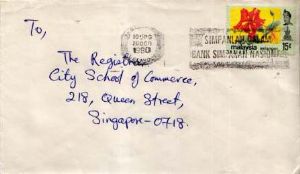 To,
The Registrar,
City School of Commerce,
218, Queen Street,
Singapore-0718.
1980
SIMPANLAH DALAM
BANK SIMPANAN NASIONAL
malaysia
15¢